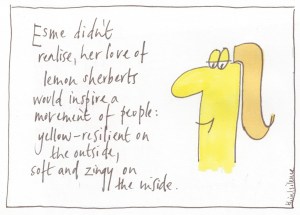 Esme didn't
realise, her love of
lemon sherberts
would inspire a
movement of people:
yellow-resilient on
the outside,
soft and zingy on
the inside.